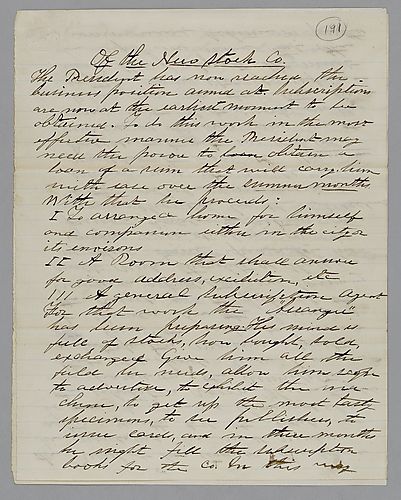 191
Of the New Stock Co.
The President has now reached the
business position aimed at. Subscriptions
are now at the earliest moment to be
obtained. To do this work in the most
effective manner the President may
need the power to obtain a
loan of a sum that will carry him
with ease over the summer months
With that he proceeds:
I To arrange home for himself
and companion either in the city or
its envisons
II A Room that shall answer
for good address, exhibition, etc
III A general Subscription Agent
For that work the
has been preparing. His mind is
full of stock, how bought, sold,
exchanged. Give him all the
field he needs, allow him scope
to advertise, to exhibit the ma
chine, to get up the most tasty
specimens, to see publishers, to
issue card, and in three months
he might fill the subscription
books for the Co. In this way